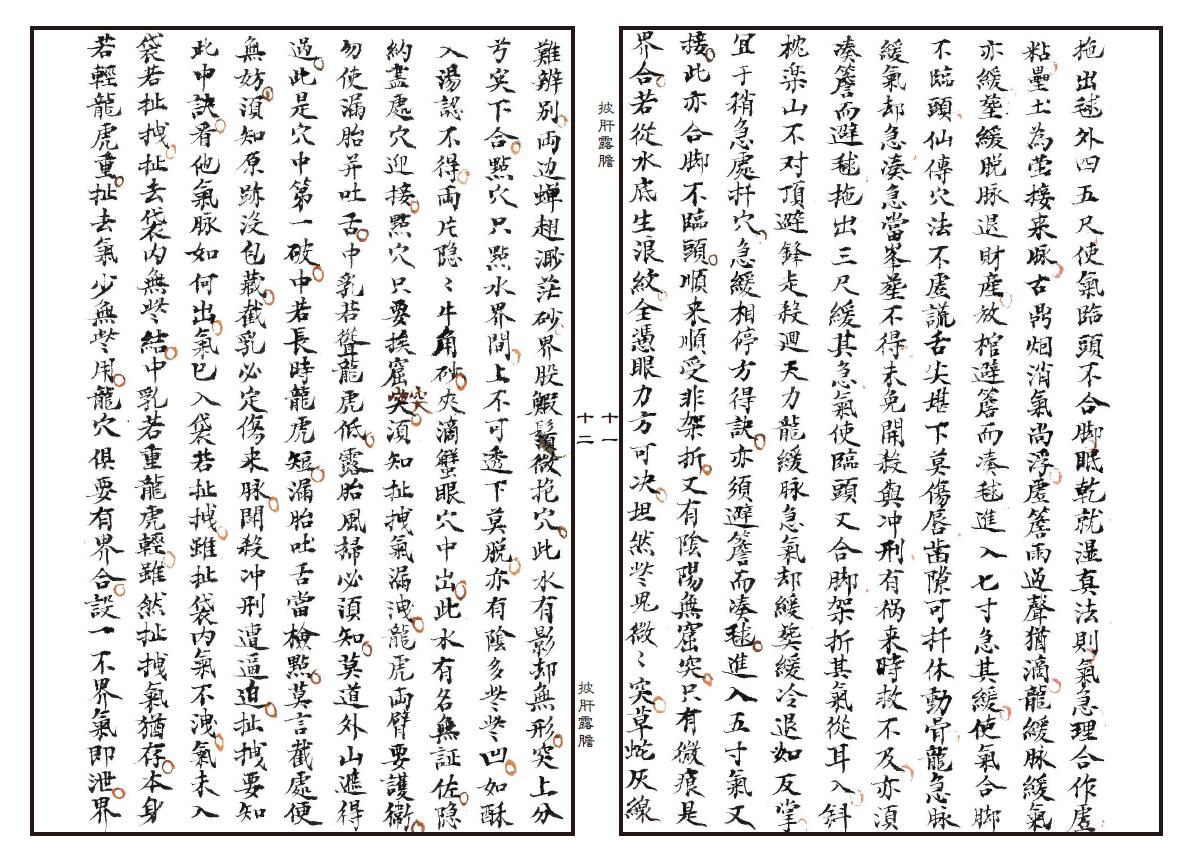 拖出毬外四五尺使氣臨頭不合脚眠乾就湿真法則氣急理合作虛
粘壘土為塋接来脉古鼎烟消氣尚浮虛簷雨過聲猶滴龍緩脉緩氣
亦緩塟緩脱脉退財産放棺避簷而凑毬進入七寸急其緩使氣合脚
不臨頭仙傳穴法不虛謊舌尖堪下莫傷唇齒隙可扦休動骨龍急脉
緩氣却急凑急當峯塟不得未免開殺與冲刑有禍来時救不及亦湏
凑簷而避毬拖出三尺緩其急氣使臨頭又合脚架折其氣從耳入斜
枕楽山不对頂避鋒走殺迴天力龍緩脉急氣却緩塟緩冷退如反掌
宜于稍急處扦穴急緩相停方得訣亦須避簷而凑毬進入五寸氣又
接此亦合脚不臨頭順来順受非架折又有陰陽無窟突只有微痕是
界合若從水底生浪紋全憑眼力方可决坦然些見微〻突草蛇灰線
十一
披肝露膽
難辨别両边蝉翅渺茫砂界股蝦鬚微抱穴此水有影却無形突上分
兮突下合點穴只點水界間上不可透下莫脱亦有陰多些些凹如酥
入湯認不得両片隐〻牛角砂夾滴蟹眼穴中出此水有名無証佐隐
納盡處穴迎接點穴只要挨窟突湏知扯拽氣漏洩龍虎両臂要護衛
勿使漏胎并吐舌中乳若聳龍虎低露胎風掃必須知莫道外山遮得
過此是穴中第一破中若長時龍虎短漏胎吐舌當檢點莫言截處便
無妨湏知原跡没包藏截乳必定傷来脉開殺冲刑遭逼迫扯拽要知
此中訣看他氣脉如何出氣已入袋若扯拽雖扯袋内氣不洩氣未入
袋若扯拽扯去袋内無些結中乳若重龍虎輕雖然扯拽氣猶存本身
若輕龍虎重扯去氣少無些用龍穴俱要有界合設一不界氣即泄界
十二
披肝露膽